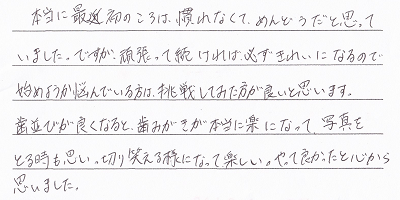 本当に最初のころは、慣れなくて、めんどうだと思って
いました。ですが、頑張って続ければ必ずきれいになるので
始めようか悩んでいる方は、挑戦してみた方が良いと思います。
歯並びが良くなると、歯みがきが本当に楽になって、写真を
とる時も思いっ切り笑える様になって楽しい。やって良かったと心から
思いました。